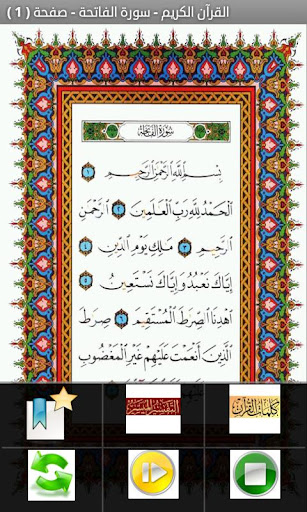 القرآن الكريم - سورة الفاتحة - صفحة ( 1 )
سُورَةُ الفَاتِحَةِ
بِسْمِ ٱللَّهِ ٱلرَّحْمَٰنِ ٱلرَّحِيمِ ١
ٱلْحَمْدُ لِلَّهِ رَبِّ ٱلْعَٰلَمِينَ ٢ ٱلرَّحْمَٰنِ
ٱلرَّحِيمِ ٣ مَٰلِكِ يَوْمِ ٱلدِّينِ ٤
إِيَّاكَ نَعْبُدُ وَإِيَّاكَ نَسْتَعِينُ ٥
ٱهْدِنَا ٱلصِّرَٰطَ ٱلْمُسْتَقِيمَ ٦ صِرَٰطَ
ٱلَّذِينَ أَنْعَمْتَ عَلَيْهِمْ غَيْرِ ٱلْمَغْضُوبِ
كلمات القرآن
التفسير الميسر